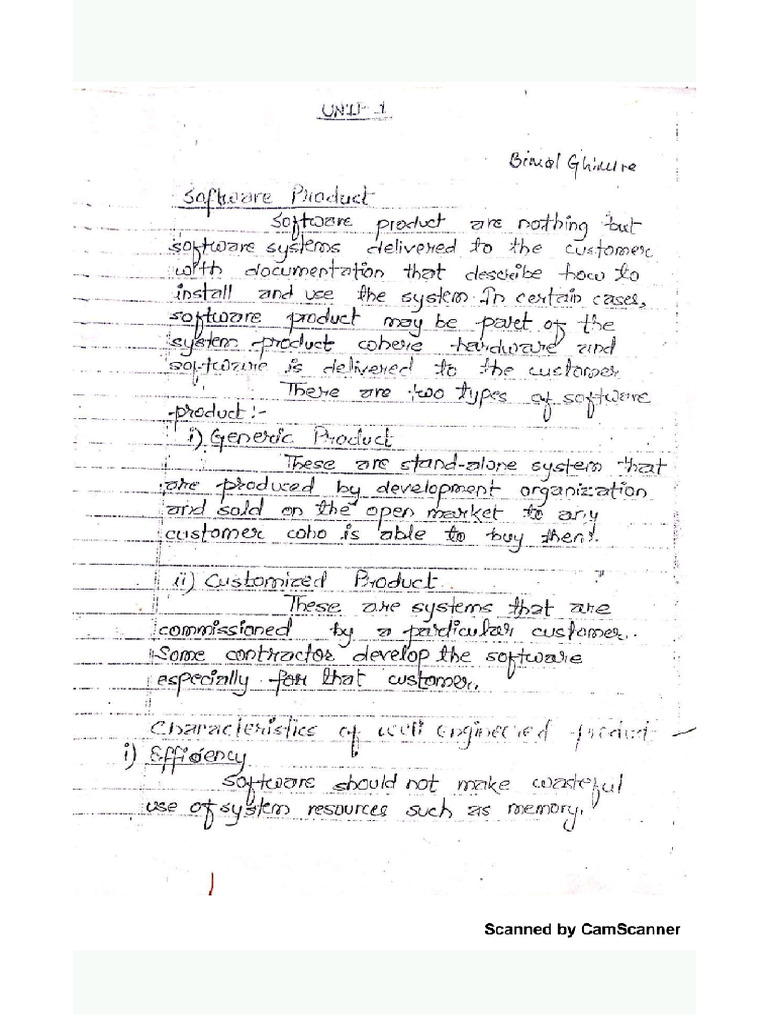 UNIT- 1
Bimal Ghimire
Software Product
Software product are nothing but
software systems delivered to the customer
with documentation that describe how to
install and use the system. In certain cases,
software product may be part of the
system product where hardware and
software is delivered to the customer
There are two types of software
product:-
i) Generic Product
These are stand-alone system that
are produced by development organization
and sold on the open market to any
customer who is able to buy them.
ii) Customized Product
These are systems that are
commissioned by a particular customer.
Some contractor develop the software
especially for that customer.
Characteristics of well engineered product
i) Efficiency
Software should not make wasteful
use of system resources such as memory.
1
Scanned by CamScanner